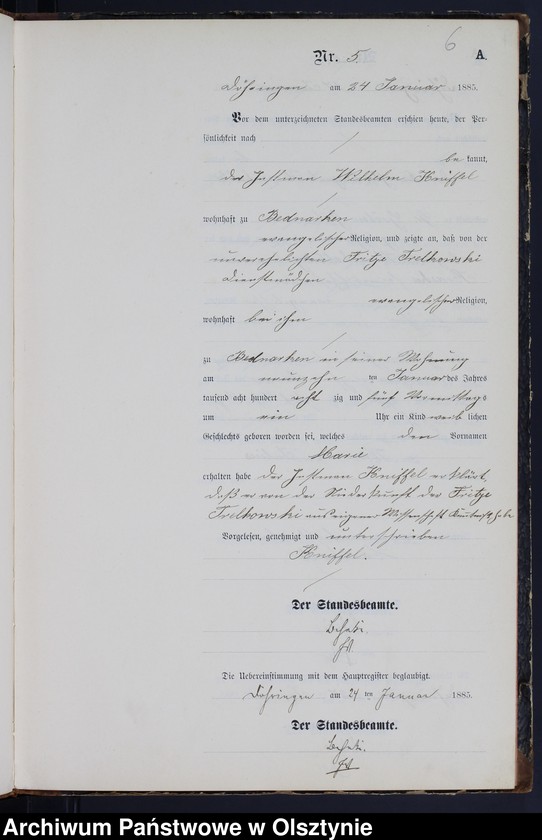 6
Nr. 5. A.
Döhringen am 24 Januar 1885.
Vor dem unterzeichneten Standesbeamten erschien heute, der Per-
sönlichkeit nach
be kannt,
der Instmann Wilhelm Kniffel
wohnhaft zu Bednarken
evangelischer Religion, und zeigte an, daß von der
unverehelichten Fritze Trelkowski
Dienstmädchen
evangelischer Religion,
wohnhaft bei ihm
zu Bednarken in seiner Wohnung
am neunzehn ten Januar des Jahres
tausend acht hundert acht zig und fünf Vormittags
um ein Uhr ein Kind weib lichen
Geschlechts geboren worden sei, welches den Vornamen
Marie
erhalten habe der Instmann Kniffel erklärt,
daß er von der Niederkunft der Fritze
Trelkowski aus eigener Wissenschaft Kenntniß habe
Vorgelesen, genehmigt und unterschrieben
Kniffel.
Der Standesbeamte.
Die Uebereinstimmung mit dem Hauptregister beglaubigt.
Döhringen am 24 ten Januar 1885.
Der Standesbeamte.
Archiwum Państwowe w Olsztynie